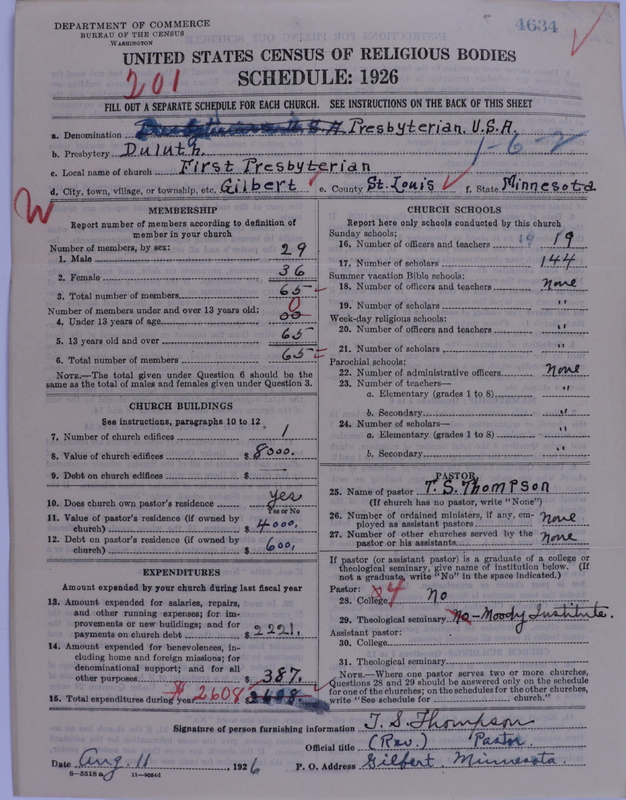 DEPARTMENT OF COMMERCE
BUREAU OF THE CENSUS
WASHINGTON
4634
UNITED STATES CENSUS OF RELIGIOUS BODIES
SCHEDULE: 1926
201
FILL OUT A SEPARATE SCHEDULE FOR EACH CHURCH. SEE INSTRUCTIONS ON THE BACK OF THIS SHEET
a. Denomination Presbyterian, U.S.A.
b. Presbytery Duluth. 1-6-2
c. Local name of church First Presbyterian
d. City, town, village, or township, etc. Gilbert e. County St. Louis f. State Minnesota
W
MEMBERSHIP
Report number of members according to definition of
member in your church
Number of members, by sex:
1. Male 29
2. Female 36
3. Total number of members 65
Number of members under and over 13 years old:
4. Under 13 years of age 00 0
5. 13 years old and over 65
6. Total number of members 65
NOTE.—The total given under Question 6 should be
same as the total of males and females given under Question 3.
CHURCH BUILDINGS
See instructions, paragraphs 10 to 12
7. Number of church edifices 1
8. Value of church edifices $ 8000.
9. Debt on church edifices $ —
10. Does church own pastor's residence yes
Yes or No
11. Value of pastor's residence (if owned by
church) $ 4000.
12. Debt on pastor's residence (if owned by
church) $ 600.
EXPENDITURES
Amount expended by your church during last fiscal year
13. Amount expended for salaries, repairs,
and other running expenses; for im-
provements or new buildings; and for
payments on church debt $ 2221.
14. Amount expended for benevolences, in-
cluding home and foreign missions; for
denominational support; and for all
other purposes $ 387.
15. Total expenditures during year $ 2608 2608
CHURCH SCHOOLS
Report here only schools conducted by this church
Sunday schools:
16. Number of officers and teachers 19 19
17. Number of scholars 144
Summer vacation Bible schools:
18. Number of officers and teachers none
19. Number of scholars "
Week-day religious schools:
20. Number of officers and teachers "
21. Number of scholars "
Parochial schools:
22. Number of administrative officers none
23. Number of teachers—
a. Elementary (grades 1 to 8) "
b. Secondary "
24. Number of scholars—
a. Elementary (grades 1 to 8) "
b. Secondary "
PASTOR
25. Name of pastor T. S. Thompson
(If church has no pastor, write "None")
26. Number of ordained ministers, if any, em-
ployed as assistant pastors none
27. Number of other churches served by the
pastor or his assistants none
If pastor (or assistant pastor) is a graduate of a college or
theological seminary, give name of institution below. (If
not a graduate, write "No" in the space indicated.)
Pastor: x4
28. College No
29. Theological seminary No - Moody Institute.
Assistant pastor:
30. College
31. Theological seminary
NOTE.—Where one pastor serves two or more churches,
Questions 28 and 29 should be answered only on the schedule
for one of the churches; on the schedules for the other churches,
write "See schedule for church."
Signature of person furnishing information T. S. Thompson
Official title (Rev.) Pastor
Date Aug. 11, 1926 P. O. Address Gilbert, Minnesota.